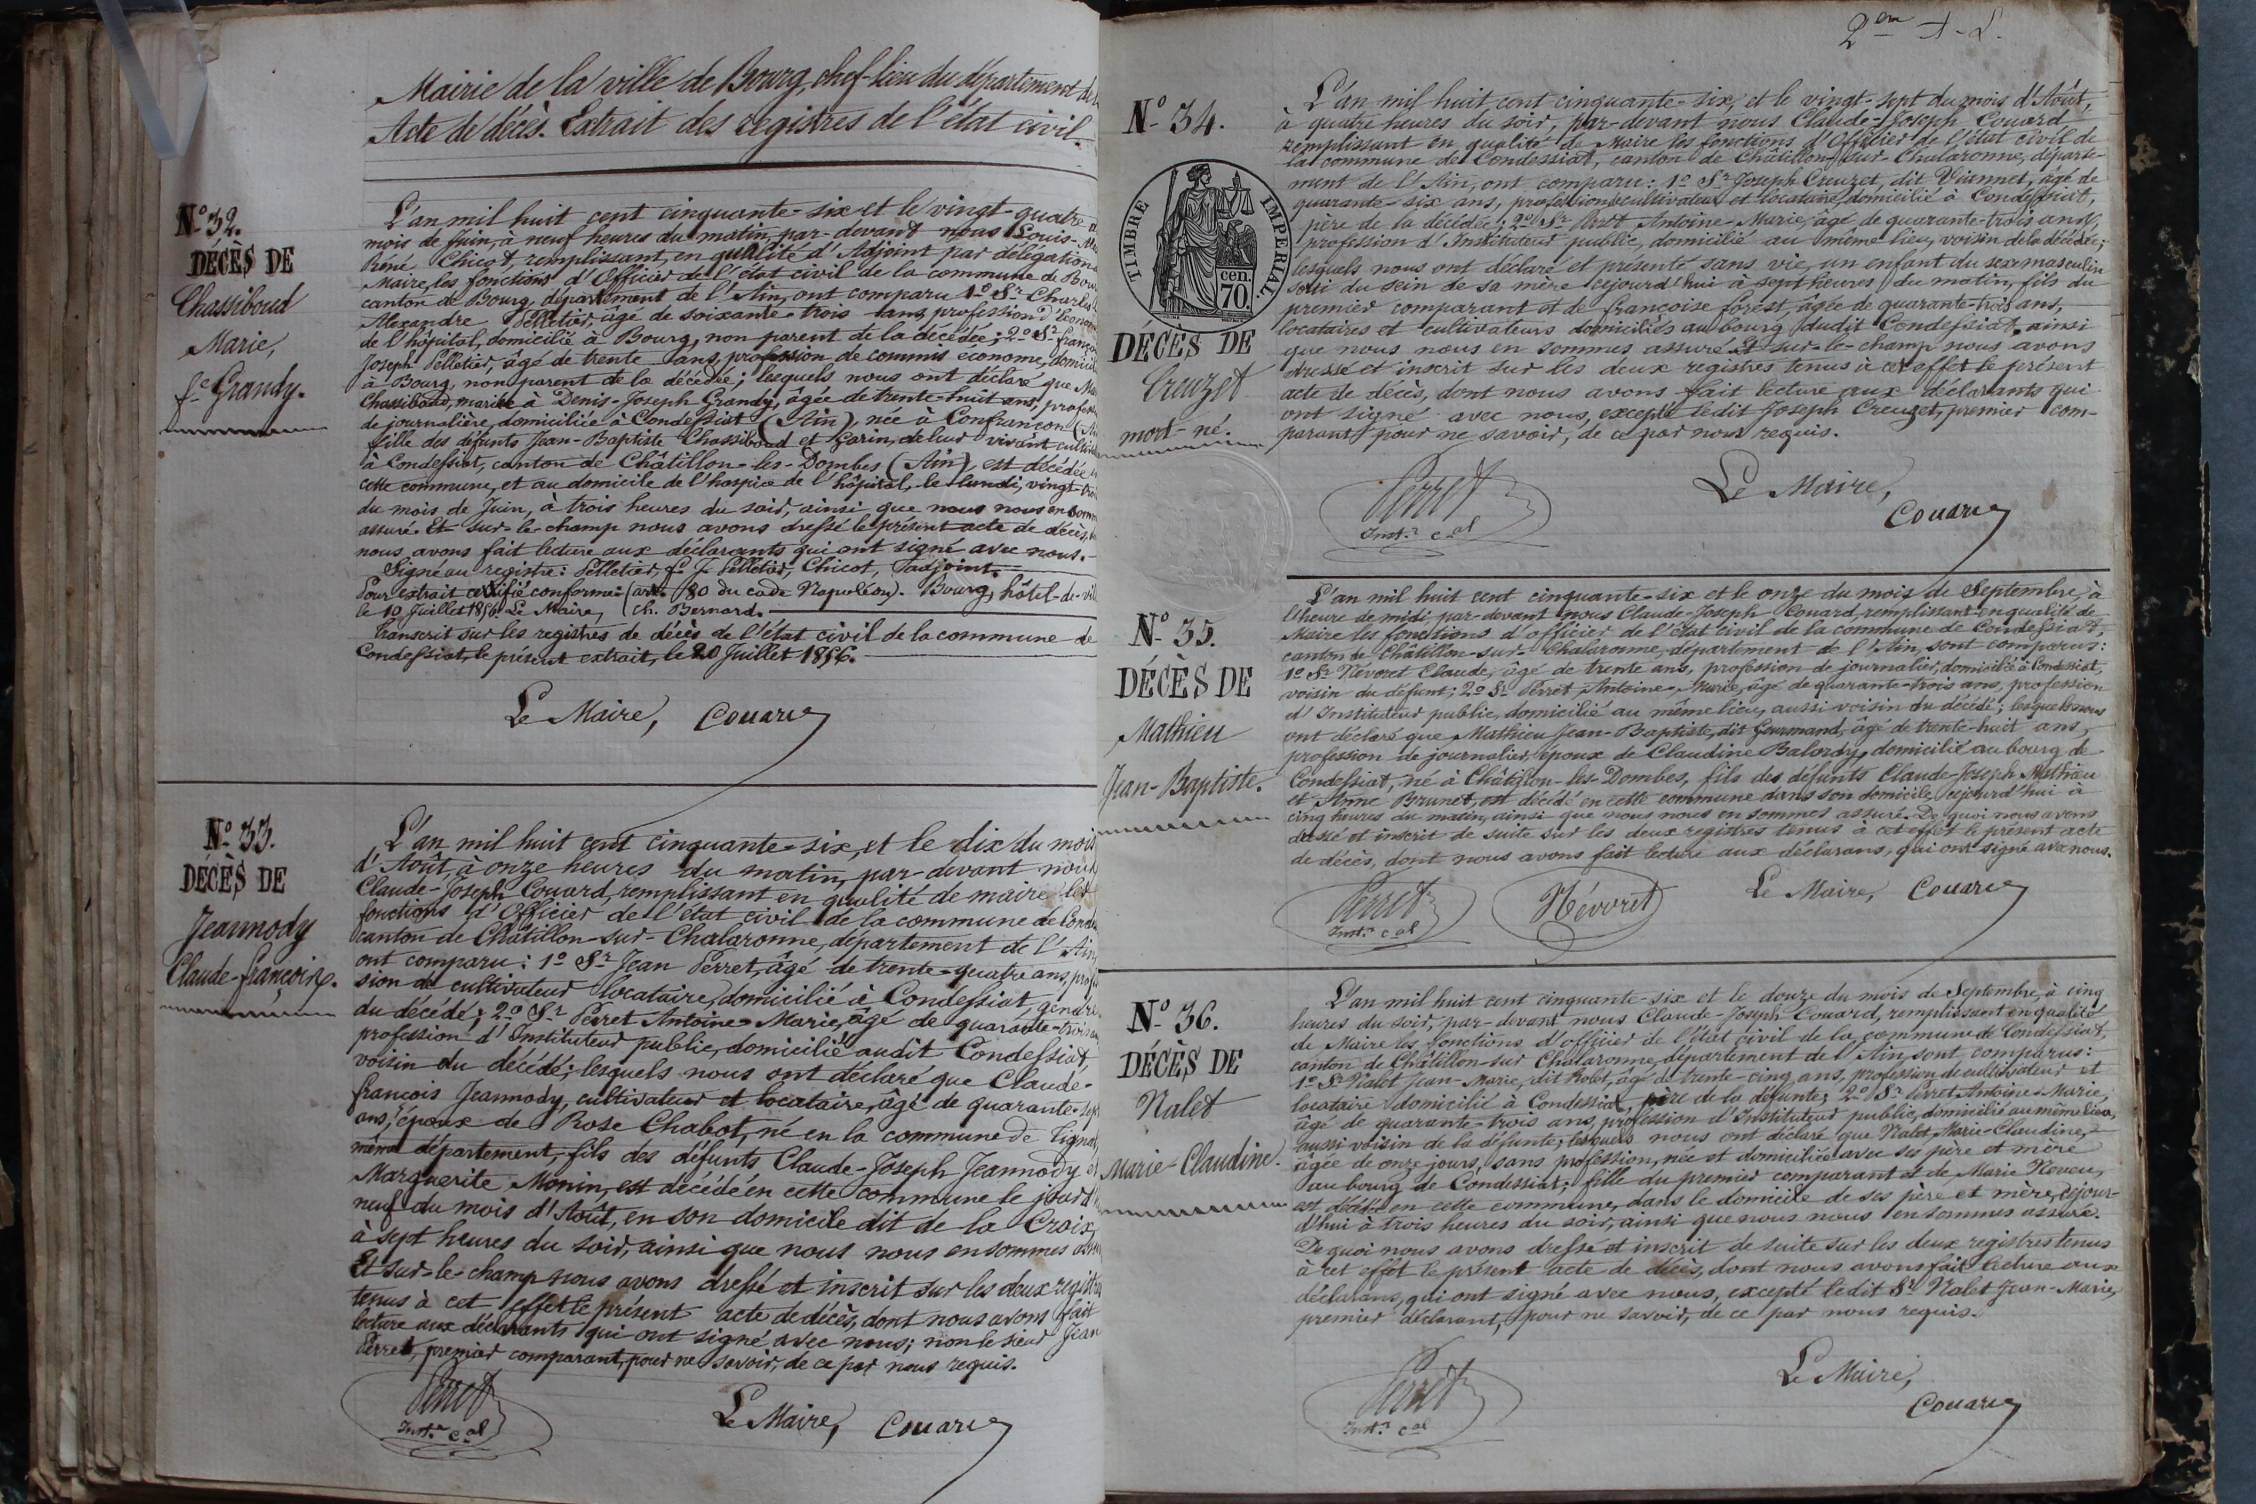 Mairie de la ville de Bourg, chef-lieu du département de
Acte de décès. Extrait des registres de l'état civil.
N.º 32.
DÉCÈS DE
Chassiboud
Marie,
f.e Grandy.
L'an mil huit cent cinquante-six et le vingt-quatre
mois de Juin, à neuf heures du matin, par-devant nous Louis-
Réné Chicot, remplissant, en qualité d'Adjoint par délégation
Maire, les fonctions d'Officier de l'état civil de la commune de Bou
canton de Bourg, département de l'Ain, ont comparu 1.º S.r Charles
Alexandre Pelletier, âgé de soixante-trois ans, profession d'Econo
de l'hôpital, domicilié à Bourg, non parent de la décédée; 2.º S.r françoi
Joseph Pelletier, âgé de trente ans, profession de commis économe, domicil
à Bourg, non parent de la décédée; lesquels nous ont déclaré que Ma
Chassiboud, mariée à Denis-Joseph Grandy, âgée de trente-huit ans, profess
de journalière, domiciliée à Condessiat (Ain), née à Confrançon (Ai
fille des défunts Jean-Baptiste Chassiboud et Garin, de leur vivant cultiv
à Condessiat, canton de Châtillon-les-Dombes (Ain), est décédée
cette commune, et au domicile de l'hospice de l'hôpital, le lundi, vingt-troi
du mois de Juin, à trois heures du soir, ainsi que nous nous en somm
assuré. Et sur-le-champ nous avons dressé le présent acte de décès,
nous avons fait lecture aux déclarants qui ont signé avec nous.
Signé au registre: Pelletier, f. J. Pelletier, Chicot, adjoint.
Pour extrait certifié conforme (art. 80 du code Napoléon). Bourg, hôtel-de-vil
le 10 Juillet 1856. Le Maire, Ch. Bernard.
Transcrit sur les registres de décès de l'état civil de la commune de
Condessiat, le présent extrait, le 20 Juillet 1856.
Le Maire, Couard
N.º 33.
DÉCÈS DE
Jeannody
Claude-françois.
L'an mil huit cent cinquante-six, et le dix du mois
d'Août, à onze heures du matin, par-devant nous
Claude-Joseph Couard, remplissant en qualité de maire les
fonctions d'Officier de l'état civil de la commune de Conde
canton de Châtillon-sur-Chalaronne, département de l'Ain,
ont comparu: 1.º S.r Jean Perret, âgé de trente-quatre ans, profes
sion de cultivateur locataire, domicilié à Condessiat, gendre
du décédé; 2.º S.r Perret Antoine-Marie, âgé de quarante-trois an
profession d'Instituteur public, domicilié audit Condessiat,
voisin du décédé; lesquels nous ont déclaré que Claude-
françois Jeannody, cultivateur et locataire, âgé de quarante-sept
ans, époux de Rose Chabot, né en la commune de
même département, fils des défunts Claude-Joseph Jeannody et
Marguerite Monin, est décédé en cette commune le jour d'
neuf du mois d'Août, en son domicile dit de la Croix,
à sept heures du soir, ainsi que nous nous en sommes assu
Et sur-le-champ nous avons dressé et inscrit sur les deux registres
tenus à cet effet le présent acte de décès, dont nous avons fait
lecture aux déclarants qui ont signé avec nous; non le sieur Jean
Perret, premier comparant, pour ne savoir, de ce par nous requis.
Perret
Inst.r c.al
Le Maire, Couard
2.em
N.º 34.
TIMBRE IMPERIAL.
70 cen.
DÉCÈS DE
Creuzet
mort-né.
L'an mil huit cent cinquante-six, et le vingt-sept du mois d'Août,
à quatre heures du soir, par-devant nous Claude-Joseph Couard
remplissant en qualité de Maire les fonctions d'Officier de l'état civil de
la commune de Condessiat, canton de Châtillon-sur-Chalaronne, départe-
ment de l'Ain, ont comparu: 1.º S.r Joseph Creuzet, dit Viannet, âgé de
quarante-six ans, profession de cultivateur et locataire, domicilié à Condessiat,
père de la décédée; 2.º S.r Perret Antoine-Marie, âgé de quarante-trois ans,
profession d'Instituteur public, domicilié au même lieu, voisin de la décédée;
lesquels nous ont déclaré et présenté sans vie, un enfant du sexe masculin
sorti du sein de sa mère cejourd'hui à sept heures du matin, fils du
premier comparant et de françoise forêst, âgée de quarante-trois ans,
locataires et cultivateurs domiciliés au bourg dudit Condessiat, ainsi
que nous nous en sommes assuré. Et sur-le-champ nous avons
dressé et inscrit sur les deux registres tenus à cet effet le présent
acte de décès, dont nous avons fait lecture aux déclarants qui
ont signé avec nous, excepté ledit Joseph Creuzet, premier com-
parant, pour ne savoir, de ce par nous requis.
Perret
Inst.r c.al
Le Maire,
Couard
N.º 35.
DÉCÈS DE
Mathieu
Jean-Baptiste.
L'an mil huit cent cinquante-six et le onze du mois de Septembre, à
l'heure de midi, par-devant nous Claude-Joseph Couard, remplissant en qualité de
Maire les fonctions d'officier de l'état civil de la commune de Condessiat,
canton de Châtillon-sur-Chalaronne, département de l'Ain, sont comparus:
1.º S.r Névoret Claude, âgé de trente ans, profession de journalier, domicilié à Condessiat,
voisin du défunt; 2.º S.r Perret Antoine-Marie, âgé de quarante-trois ans, profession
d'Instituteur public, domicilié au même lieu, aussi voisin du décédé; lesquels nous
ont déclaré que Mathieu Jean-Baptiste, dit Gourmand, âgé de trente-huit ans,
profession de journalier, époux de Claudine Balandy, domicilié au bourg de
Condessiat, né à Châtillon-les-Dombes, fils des défunts Claude-Joseph Mathieu
et Anne Brunet, est décédé en cette commune dans son domicile, cejourd'hui à
cinq heures du matin, ainsi que nous nous en sommes assuré. De quoi nous avons
dressé et inscrit de suite sur les deux registres tenus à cet effet le présent acte
de décès, dont nous avons fait lecture aux déclarans, qui ont signé avec nous.
Perret
Inst.r c.al
Névoret
Le Maire, Couard
N.º 36.
DÉCÈS DE
Nalet
Marie-Claudine.
L'an mil huit cent cinquante-six et le douze du mois de Septembre, à cinq
heures du soir, par-devant nous Claude-Joseph Couard, remplissant en qualité
de Maire les fonctions d'officier de l'état civil de la commune de Condessiat,
canton de Châtillon-sur Chalaronne, département de l'Ain, sont comparus:
1.º S.r Nalet Jean-Marie, dit Rolet, âgé de trente-cinq ans, profession de cultivateur et
locataire domicilié à Condessiat, père de la défunte; 2.º S.r Perret Antoine-Marie,
âgé de quarante-trois ans, profession d'Instituteur public, domicilié au même lieu,
aussi voisin de la défunte; lesquels nous ont déclaré que Nalet Marie-Claudine,
âgée de onze jours, sans profession, née et domiciliée avec ses père et mère
au bourg de Condessiat; fille du premier comparant et de Marie Neveu,
est décédée en cette commune, dans le domicile de ses père et mère, cejour-
d'hui à trois heures du soir, ainsi que nous nous en sommes assuré.
De quoi nous avons dressé et inscrit de suite sur les deux registres tenus
à cet effet le présent acte de décès, dont nous avons fait lecture aux
déclarans, qui ont signé avec nous, excepté ledit S.r Nalet Jean-Marie,
premier déclarant, pour ne savoir, de ce par nous requis.
Perret
Inst.r c.al
Le Maire,
Couard